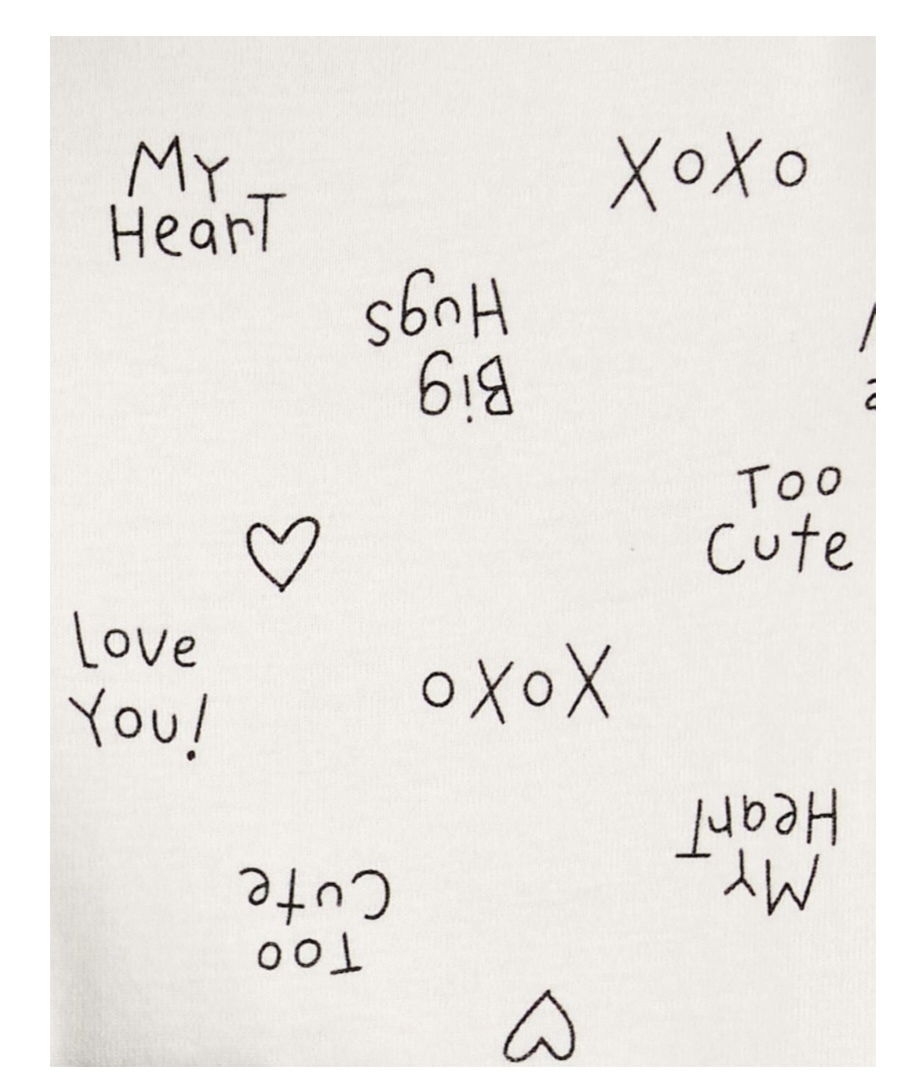 My
Heart
XoXo
Big
Hugs
Too
Cute
Love
You!
oXoX
My
Heart
Too
Cute